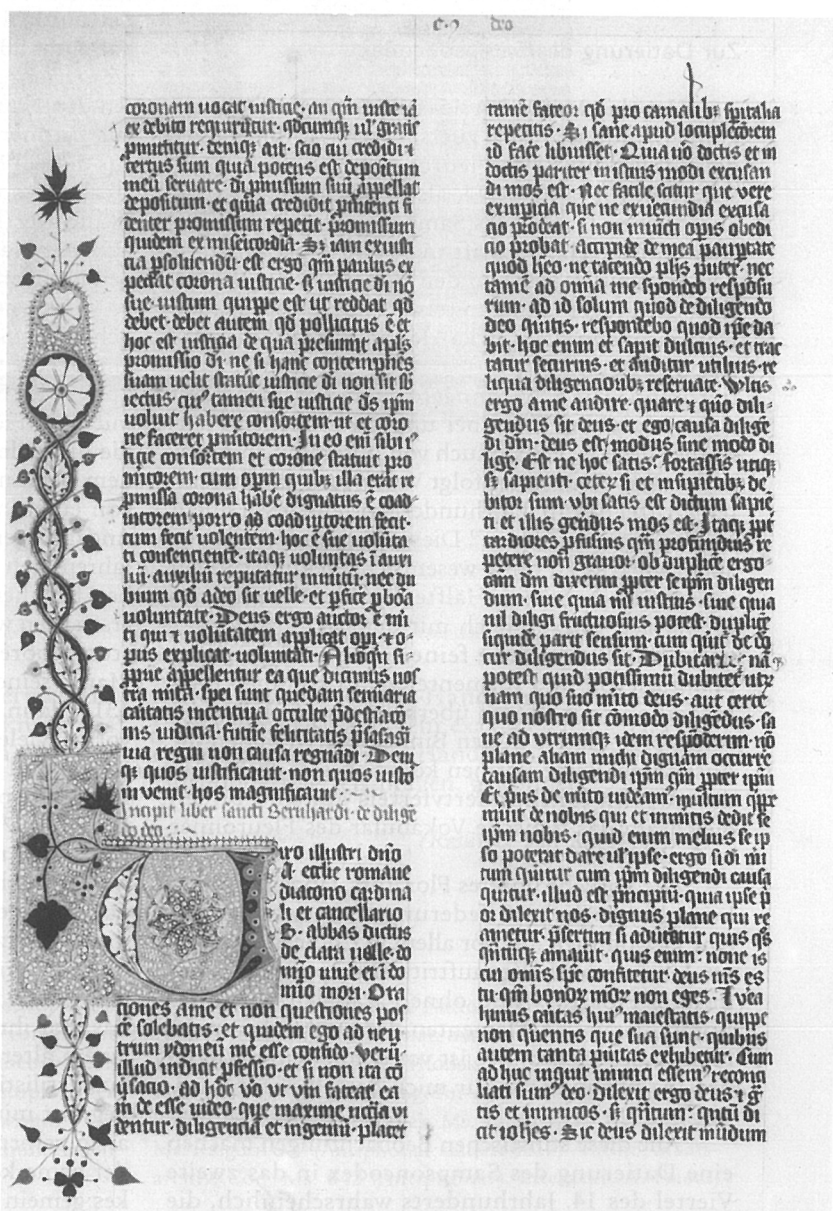 coronam uocat iusticie · an qm̄ iuste iā
ex debito requiritur · qđcumqʒ uł gratis
ꝓmittitur · deniqʒ ait · scio cui credidi ⁊
certus sum quia potens est depositum
meū seruare · di ꝓmissum suū appellat
depositum · et quia credidit ꝓmittenti fi
denter promissum repetit · promissum
quidem ex misericordia · Sʒ iam ex iusti
cia ꝑsoluendū · est ergo qm̄ paulus ex
pectat corona iusticie · sʒ iusticie di nō
sue · iustum quippe est ut reddat qđ
debet · debet autem qđ pollicitus ē et
hoc est iusticia de qua presumit apl̄s
promissio di · ne si hanc contempnēs
suam uelit statuē iusticie di non sit sb̄
iectus · cui⁹ tamen sue iusticie ds̄ ipm̄
uoluit habere consortem · ut et coro
ne faceret ꝓmitorem · In eo eīu sibi i⁹
ticie consortem et corone statuit pro
mitorem · cum opm̄ quibʒ illa erat re
pmissa corona habē dignatus ē coad
iutorem porro ad coadiutorem fecit ·
cum fecit uolentem · hoc ē sue uolūta
ti consenciente · itaqʒ uoluntas ī auxi
liū · auxiliū reputatur in mitū · nec du
bium qđ a deo sit uelle · et ꝑficē ꝑ bōa
uoluntate · Deus ergo auctor ē m̄i
ti qui ⁊ uolūtatem applicat opi · ⁊ o
pus explicat uoluntati · Alioq̄n si
ꝓprie appellentur ea que dicimus nos
tra mīta · spei sunt quedam seminaria
caritatis incentiua occulte p̄destinacō
nis iudicia · future felicitatis p̄sagia
uia regni non causa regnādi · Deni
qʒ quos iustificauit · non quos iustos
in uenit · hos magnificauit
Incipit liber sancti Bernhardi · de dilige
do deo
Uiro illustri dn̄o
A · ecclie romane
diacono cardina
li et cancellario
B · abbas dictus
de clara ualle · do
mīo uiue et ī do
mīo mori · Ora
ciones a me et non questiones pos
cē solebatis · et quidem ego ad neu
trum ydoneū me esse confido · Verū
illud indicit ꝓfessio · et si non ita cō
ūsacio · ad hoc vo ut vm̄ fatear ea
m̄ de esse uideo · que maxime nccīa vi
dentur · diligencia et ingeniū · placet
c · deo
tamē fateor qđ pro carnalibʒ spitalia
repetitis · Si sane apud locupletiorem
id facē libuisset · Quia uō doctis et in
doctis pariter in istius modi excusan
di mos est · Nec facile scitur que vere
ex inpicia que ne ex uecundia excusa
cio prodeat · si non iniuncti opis obedi
cio probat · accipite de mea paupertate
quod hēo · ne tacendo phs̄ puter · nec
tamē ad omīa me spondeo respōsu
rum · ad id solum quod de diligendo
deo q̄ritis · respondebo quod ip̄e da
bit · hoc enim et sapit dulcius · et trac
tatur securius · et auditur utilius · re
liqua diligencioribʒ reseruate · Vltis
ergo a me audire · quare ⁊ quō dili
gendus sit deus · et ego / causa diligē
di dm̄ · deus est / modus sine modo di
ligē · Est ne hoc satis? fortassis utiqʒ
sʒ sapienti · ceterʒ si et insipiētibʒ de
bitor sum · vbi satis est dictum sapiē
ti et illis gerēdus mos est · Itaqʒ ꝓpt
tardiores ꝓfusius qm̄ profundius re
petere non grauor · ob duplicē ergo
cam dm̄ dixerim ꝓpter seipm̄ diligen
dum · siue quia nil iustius · siue quia
nil diligi fructuosius potest · duplicē
siquidē parit sensum · cum q̄rit̄ de do
cur diligendus sit · Dubitari · nāqʒ
potest quid potissimū dubitet̄ utrʒ
nam quo suo m̄ito deus · aut certe
quo nostro sit cōmodo diligēdus · sa
ne ad vtrumqʒ idem respōderim · nō
plane aliam michi dignam occurre
causam diligendi ipm̄ qm̄ ꝓpter ipm̄
Et p̄us de m̄ito uideam⁹ · multum qpe
mīuit de nobis qui et inmītis dedit se
ipm̄ nobis · quid enim melius se ip
so poterat dare ul̄ ipse · ergo si di mi
tum q̄ritur cum ipm̄ diligendi causa
q̄ritur · illud est p̄ncipiū · quia ipse p̄
or dilexit nos · dignus plane qui re
ametur · p̄sertim si aduertatur quis q̄s
q̄ntūqʒ amauit · quis enim? none is
cui omīs spc̄ confitetur · deus m̄s es
tu · qm̄ bonorʒ mōrʒ non eges · Et vea
huius caritas hui⁹ maiestatis · quippe
non q̄rentis que sua sunt · quibus
autem tanta puritas exhibetur · Cum
adhuc inquit inimici essem⁹ reconci
liati sum⁹ deo · Dilexit ergo deus ⁊ gͣ
tis et inimicos · sʒ q̄ntum? q̄ntū di
cit ioh̄es · Sic deus dilexit mūdum